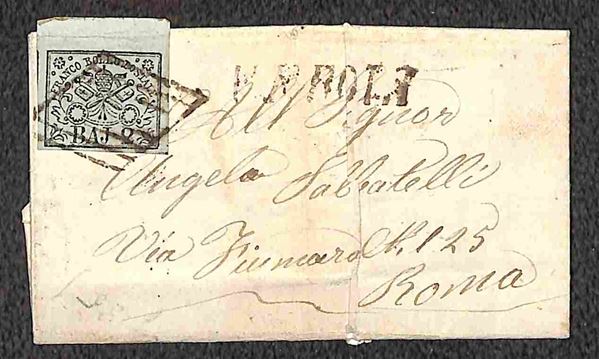 FRANCO BOLLO POSTALE
BAJ 2
Al Signor
Angelo Sabbatelli
Via Fiumara N. 125
Roma